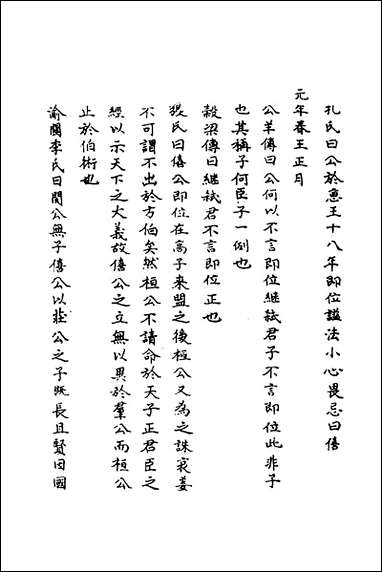 孔氏曰公於惠王十八年即位諡法小心畏忌曰僖
元年春王正月
公羊傳曰公何以不言即位繼弑君子不言即位此非子
也其稱子何臣子一例也
穀梁傳曰繼弑君不言即位正也
張氏曰僖公即位在高子來盟之後桓公又為之誅哀姜
不可謂不出於方伯矣然桓公不請命於天子正君臣之
經以示天下之大義故僖公之立無以異於羣公而桓公
止於伯術也
渝關李氏曰閔公無子僖公以莊公之子旣長且賢因國